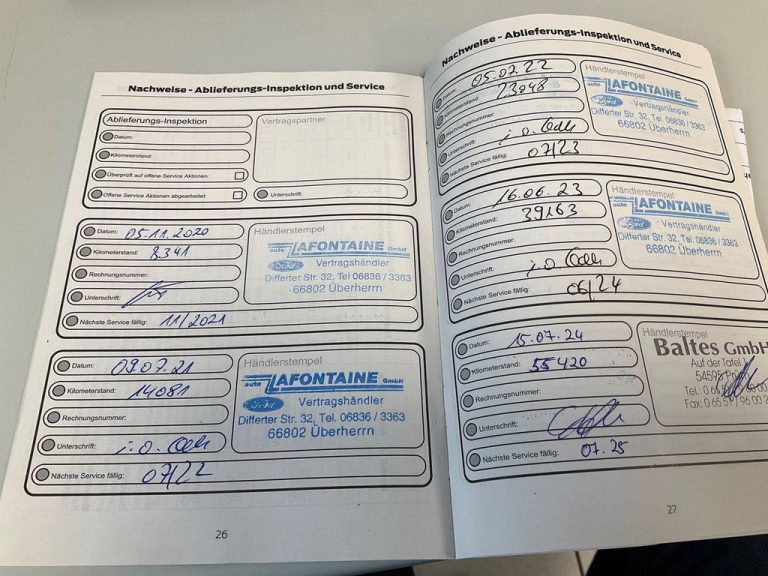 Nachweise - Ablieferungs-Inspektion und Service
Ablieferungs-Inspektion
Datum:
Kilometerstand:
Überprüft auf offene Service Aktionen:
Offene Service Aktionen abgearbeitet:
Vertragspartner
Unterschrift:
Datum: 05.11.2020
Kilometerstand: 8341
Rechnungsnummer:
Unterschrift:
Nächste Service fällig: 11/2021
Händlerstempel
auto LAFONTAINE GmbH
Ford Vertragshändler
Differter Str. 32, Tel 06836 / 3363
66802 Überherrn
Datum: 09.07.21
Kilometerstand: 14081
Rechnungsnummer:
Unterschrift: i.O.
Nächste Service fällig: 07/22
Händlerstempel
auto LAFONTAINE GmbH
Ford Vertragshändler
Differter Str. 32, Tel. 06836 / 3363
66802 Überherrn
26
Nachweise - Ablieferungs-Inspektion und Service
Datum: 05.07.22
Kilometerstand: 23048
Rechnungsnummer:
Unterschrift: i.O.
Nächste Service fällig: 07/23
Händlerstempel
auto LAFONTAINE GmbH
Ford Vertragshändler
Differter Str. 32, Tel. 06836 / 3363
66802 Überherrn
Datum: 16.06.23
Kilometerstand: 39163
Rechnungsnummer:
Unterschrift: i.O.
Nächste Service fällig: 06/24
Händlerstempel
auto LAFONTAINE GmbH
Ford Vertragshändler
Differter Str. 32, Tel. 06836 / 3363
66802 Überherrn
Datum: 15.07.24
Kilometerstand: 55420
Rechnungsnummer:
Unterschrift:
Nächste Service fällig: 07.25
Händlerstempel
Baltes GmbH
Auf der Tafel
54595
Tel.:
Fax:
27